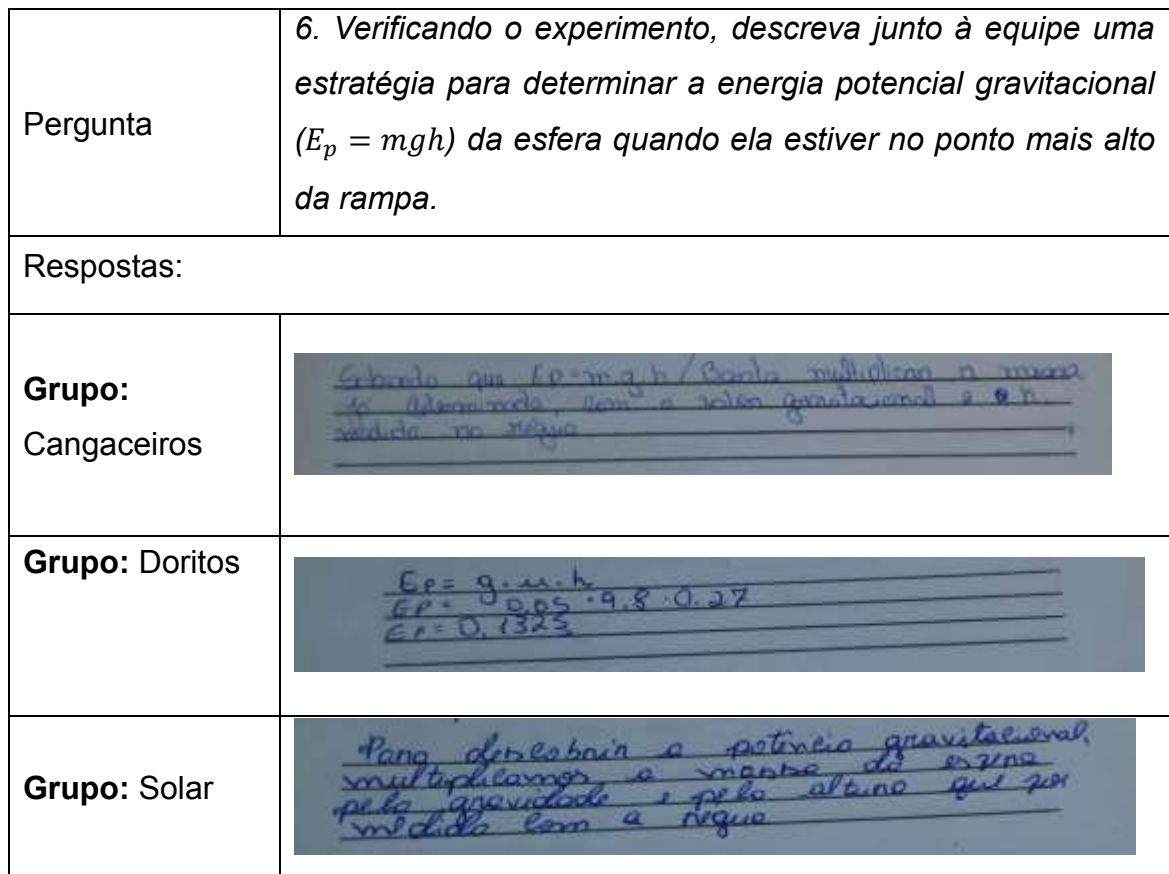 Pergunta
6. Verificando o experimento, descreva junto à equipe uma
estratégia para determinar a energia potencial gravitacional
(𝐸𝑝 = 𝑚𝑔ℎ) da esfera quando ela estiver no ponto mais alto
da rampa.
Respostas:
Grupo:
Cangaceiros
que Ep=m.g.h / Basta multiplicar a massa
já determinada, com o valor gravitacional e o h.
medida na régua
Grupo: Doritos
Ep= g.m.h
EP= 0,05 . 9,8 . 0,27
Ep= 0,1323
Grupo: Solar
Para descobrir a potência gravitacional,
multiplicamos a massa da esfera
pela gravidade e pela altura que foi
medida com a régua